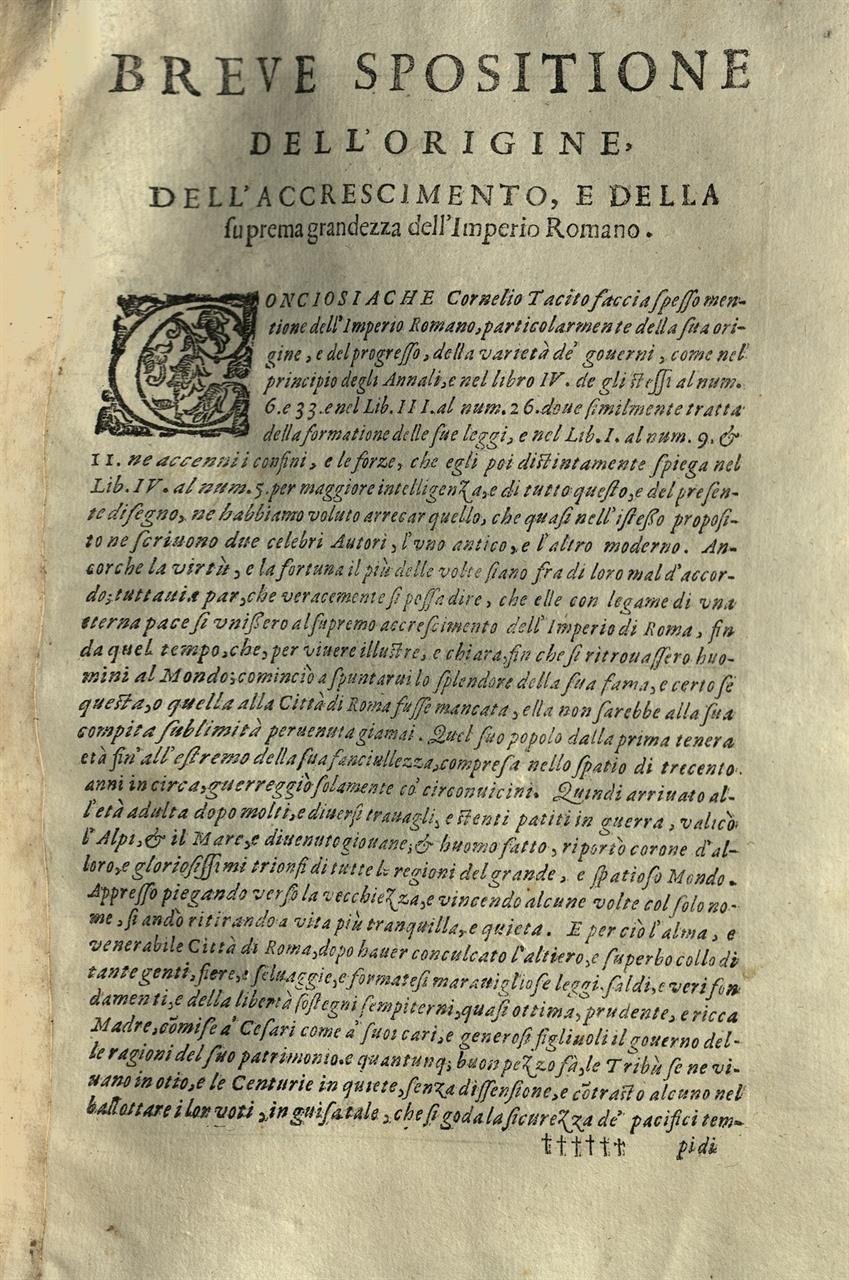 BREVE SPOSITIONE
DELL'ORIGINE,
DELL'ACCRESCIMENTO, E DELLA
ſuprema grandezza dell'Imperio Romano.
CONCIOSIACHE Cornelio Tacito faccia ſpeſſo men-
tione dell'Imperio Romano, particolarmente della ſua ori-
gine, e del progreſſo, della varietà de' gouerni, come nel
principio degli Annali, e nel libro IV. de gli ſteſſi al num.
6. e 33. e nel Lib. III. al num. 26. doue ſimilmente tratta
della formatione delle ſue leggi, e nel Lib. I. al num. 9. &
11. ne accenni i confini, e le forze, che egli poi diſtintamente ſpiega nel
Lib. IV. al num. 5. per maggiore intelligenza, e di tutto queſto, e del preſen-
te diſegno, ne habbiamo voluto arrecar quello, che quaſi nell'iſteſſo propoſi-
to ne ſcriuono due celebri Autori, l'vno antico, e l'altro moderno. An-
corche la virtù, e la fortuna il più delle volte ſiano fra di loro mal d'accor-
do; tuttauia par, che veracemente ſi poſſa dire, che elle con legame di vna
eterna pace ſi vniſſero al ſupremo accreſcimento dell'Imperio di Roma, fin
da quel tempo, che, per viuere illuſtre, e chiara, fin che ſi ritrouaſſero huo-
mini al Mondo; cominciò a ſpuntarui lo ſplendore della ſua fama, e certo ſe
queſta, o quella alla Città di Roma fuſſe mancata, ella non ſarebbe alla ſua
compita ſublimità peruenuta giamai. Quel ſuo popolo dalla prima tenera
età fin'all'eſtremo della ſua fanciullezza, compreſa nello ſpatio di trecento
anni in circa, guerreggiò ſolamente co' circonuicini. Quindi arriuato al-
l'età adulta dopo molti, e diuerſi trauagli, e ſtenti patiti in guerra, valicò
l'Alpi, & il Mare, e diuenuto giouane, & huomo fatto, riportò corone d'al-
loro, e glorioſiſſimi trionfi di tutte le regioni del grande, e ſpatioſo Mondo.
Appreſſo piegando verſo la vecchiezza, e vincendo alcune volte col ſolo no-
me, ſi andò ritirando a vita più tranquilla, e quieta. E per ciò l'alma, e
venerabile Città di Roma, dopo hauer conculcato l'altiero, e ſuperbo collo di
tante genti, fiere, e ſeluaggie, e formateſi marauiglioſe leggi, ſaldi, e veri fon
damenti, e della libertà ſoſtegni ſempiterni, quaſi ottima, prudente, e ricca
Madre, cõmiſe a' Ceſari come a' ſuoi cari, e generoſi figliuoli il gouerno del-
le ragioni del ſuo patrimonio. e quantunq; buon pezzo fà, le Tribù ſe ne vi-
uano in otio, e le Centurie in quiete, ſenza diſſenſione, e cõtraſto alcuno nel
ballottare i lor voti, in guiſa tale, che ſi goda la ſicurezza de' pacifici tem-
†††††† pi di